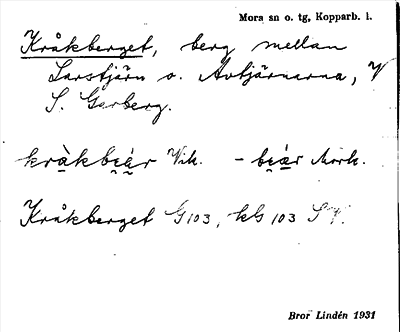 Mora sn o. tg, Kopparb. l.
Kråkberget, berg mellan
Larstjärn o. Avtjärnarna, V
S. Garberg.
kràkbi̯ér Vik. – bi̯ér Mork.
Kråkberget G 103, kb 103 SV.
Bror Lindén 1931